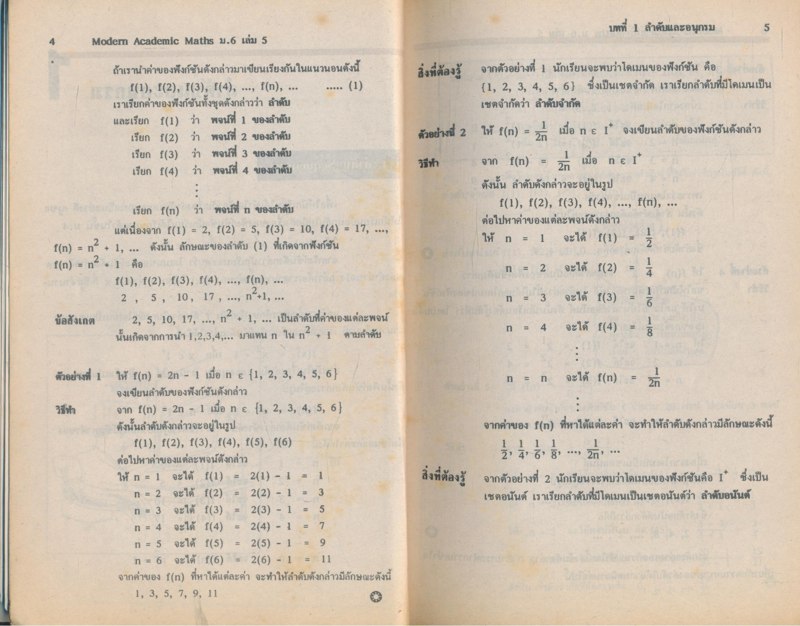 4 Modern Academic Maths ม.6 เล่ม 5
ถ้าเรานำค่าของฟังก์ชันดังกล่าวมาเขียนเรียงกันในแนวนอนดังนี้
f(1), f(2), f(3), f(4), ..., f(n), ... ..... (1)
เราเรียกค่าของฟังก์ชันทั้งชุดดังกล่าวว่า ลำดับ
และเรียก f(1) ว่า พจน์ที่ 1 ของลำดับ
เรียก f(2) ว่า พจน์ที่ 2 ของลำดับ
เรียก f(3) ว่า พจน์ที่ 3 ของลำดับ
เรียก f(4) ว่า พจน์ที่ 4 ของลำดับ
⋮
เรียก f(n) ว่า พจน์ที่ n ของลำดับ
แต่เนื่องจาก f(1) = 2, f(2) = 5, f(3) = 10, f(4) = 17, ...,
f(n) = n² + 1, ... ดังนั้น ลักษณะของลำดับ (1) ที่เกิดจากฟังก์ชัน
f(n) = n² + 1 คือ
f(1), f(2), f(3), f(4), ..., f(n), ...
2 , 5 , 10 , 17 , ..., n²+1, ...
ข้อสังเกต 2, 5, 10, 17, ..., n² + 1, ... เป็นลำดับที่ค่าของแต่ละพจน์
นั้นเกิดจากการนำ 1,2,3,4,... มาแทน n ใน n² + 1 ตามลำดับ
ตัวอย่างที่ 1 ให้ f(n) = 2n - 1 เมื่อ n ε {1, 2, 3, 4, 5, 6}
จงเขียนลำดับของฟังก์ชันดังกล่าว
วิธีทำ จาก f(n) = 2n - 1 เมื่อ n ε {1, 2, 3, 4, 5, 6}
ดังนั้นลำดับดังกล่าวจะอยู่ในรูป
f(1), f(2), f(3), f(4), f(5), f(6)
ต่อไปหาค่าของแต่ละพจน์ดังกล่าว
ให้ n = 1 จะได้ f(1) = 2(1) - 1 = 1
n = 2 จะได้ f(2) = 2(2) - 1 = 3
n = 3 จะได้ f(3) = 2(3) - 1 = 5
n = 4 จะได้ f(4) = 2(4) - 1 = 7
n = 5 จะได้ f(5) = 2(5) - 1 = 9
n = 6 จะได้ f(6) = 2(6) - 1 = 11
จากค่าของ f(n) ที่หาได้แต่ละค่า จะทำให้ลำดับดังกล่าวมีลักษณะดังนี้
1, 3, 5, 7, 9, 11
บทที่ 1 ลำดับและอนุกรม 5
สิ่งที่ต้องรู้ จากตัวอย่างที่ 1 นักเรียนจะพบว่าโดเมนของฟังก์ชัน คือ
{1, 2, 3, 4, 5, 6} ซึ่งเป็นเซตจำกัด เราเรียกลำดับที่มีโดเมนเป็น
เซตจำกัดว่า ลำดับจำกัด
ตัวอย่างที่ 2 ให้ f(n) = 1/2n เมื่อ n ε I⁺ จงเขียนลำดับของฟังก์ชันดังกล่าว
วิธีทำ จาก f(n) = 1/2n เมื่อ n ε I⁺
ดังนั้น ลำดับดังกล่าวจะอยู่ในรูป
f(1), f(2), f(3), f(4), ..., f(n), ...
ต่อไปหาค่าของแต่ละพจน์ดังกล่าว
ให้ n = 1 จะได้ f(1) = 1/2
n = 2 จะได้ f(2) = 1/4
n = 3 จะได้ f(3) = 1/6
n = 4 จะได้ f(4) = 1/8
⋮
n = n จะได้ f(n) = 1/2n
⋮
จากค่าของ f(n) ที่หาได้แต่ละค่า จะทำให้ลำดับดังกล่าวมีลักษณะดังนี้
1/2, 1/4, 1/6, 1/8, ..., 1/2n, ...
สิ่งที่ต้องรู้ จากตัวอย่างที่ 2 นักเรียนจะพบว่าโดเมนของฟังก์ชันคือ I⁺ ซึ่งเป็น
เซตอนันต์ เราเรียกลำดับที่มีโดเมนเป็นเซตอนันต์ว่า ลำดับอนันต์